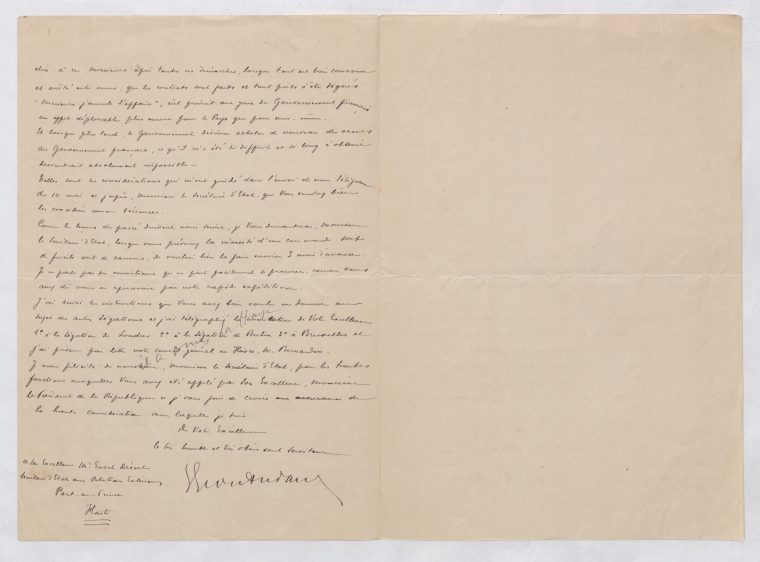 dire à ces Messieurs après toutes ces démarches, lorsque tout est bien convenu
et arrêté entre nous, que les contrats sont faits et tout prêts à être signés
"Messieurs j'annule l'affaire", eût produit aux yeux du Gouvernement français
un effet déplorable plus encore pour le Pays que pour moi-même.
Et lorsque plus tard, le Gouvernement désirera acheter de nouveau des armes
au Gouvernement français, ce qui m'a été si difficile et si long à obtenir
deviendrait absolument impossible.
Telles sont les considérations qui m'ont guidé dans l'envoi de mon télégramme
du 14 mai et j'espère, Monsieur le Secrétaire d'Etat, que Vous voudrez bien
les considérer comme sérieuses.
Comme les leçons du passé doivent nous servir, je Vous demanderai, Monsieur
le Secrétaire d'Etat, lorsque vous prévoyez la nécessité d'une commande soit
de fusils soit de canons, de vouloir bien la faire environ 3 mois d'avance.
Je ne parle pas des munitions, qu'on peut facilement se procurer, comme vous
avez dû vous en apercevoir par notre rapide expédition.
J'ai suivi les instructions que Vous avez bien voulu me donner au
sujet des autres Légations et j'ai télégraphié la nomination de Votre Excellence
1° à la Légation de Londres 2° à la Légation de Berlin 3° à Bruxelles et
j'ai prévenu par lettre notre consul général au Havre, M.
Je vous félicite de nouveau, Monsieur le Secrétaire d'Etat, pour les hautes
fonctions auxquelles Vous avez été appelé par Son Excellence, Monsieur
le Président de la République et je vous prie de croire aux assurances de
la haute considération avec laquelle je suis
De Votre Excellence
le très humble et très obéissant serviteur
à Son Excellence
Secrétaire d'Etat aux Relations Extérieures
Port-au-Prince
Haïti